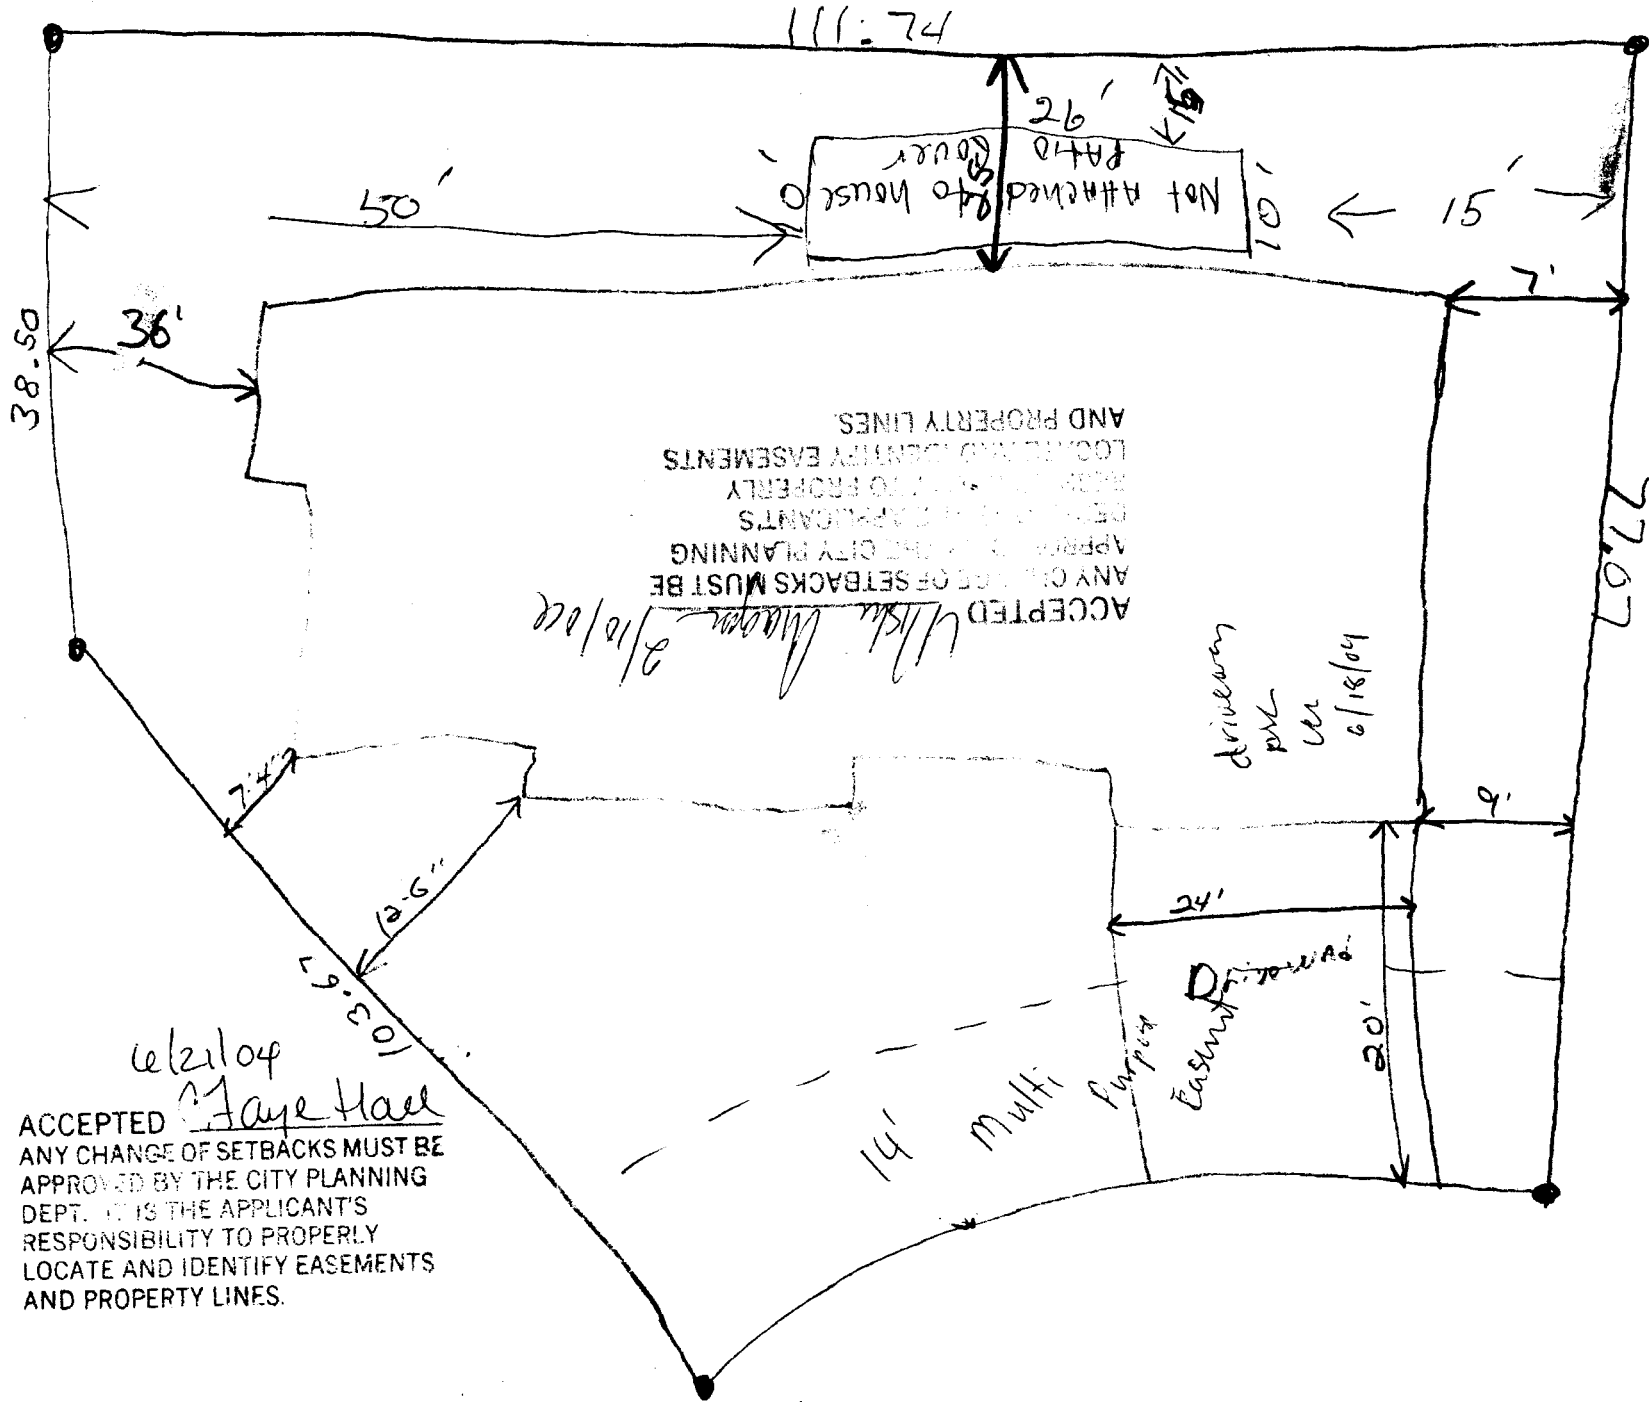 111.74
26'
15'
PATIO
Cover
Not Attached to house
10'
10'
50'
15'
7'
36'
38.50
77.07
ACCEPTED
2/10/06
ANY CHANGE OF SETBACKS MUST BE
APPROVED BY THE CITY PLANNING
DEPT. IT IS THE APPLICANT'S
RESPONSIBILITY TO PROPERLY
LOCATE AND IDENTIFY EASEMENTS
AND PROPERTY LINES.
driveway
6/18/04
9'
7'.4"
12-6"
24'
103.67
Driveway
20'
14' Multi Purpose Easmnt
6/21/04
ACCEPTED C Faye Hall
ANY CHANGE OF SETBACKS MUST BE
APPROVED BY THE CITY PLANNING
DEPT. IT IS THE APPLICANT'S
RESPONSIBILITY TO PROPERLY
LOCATE AND IDENTIFY EASEMENTS
AND PROPERTY LINES.